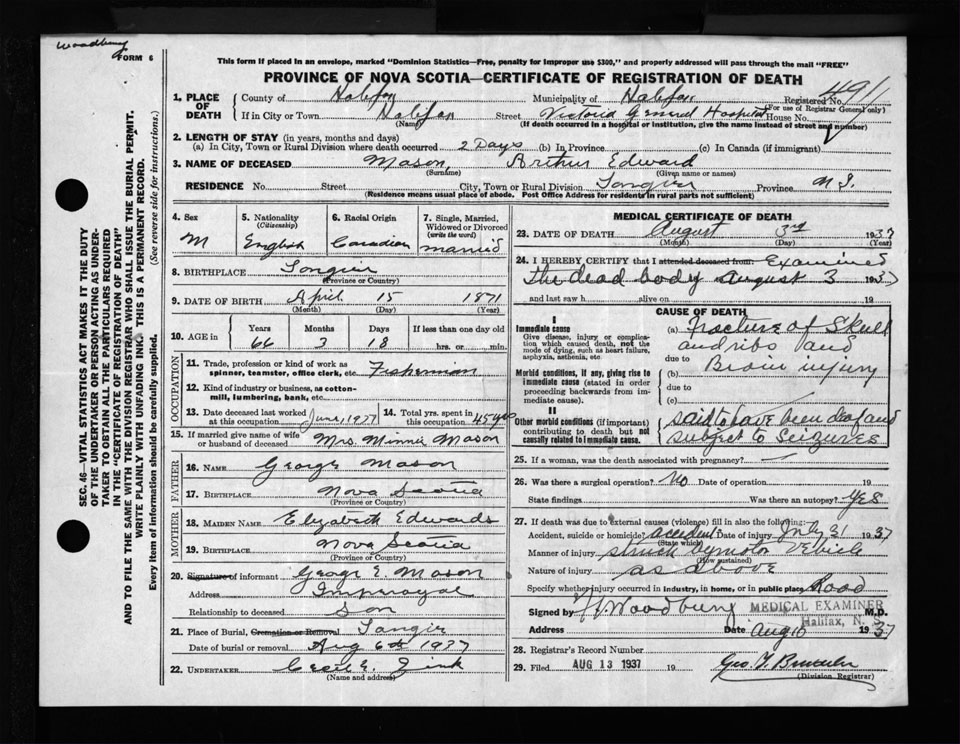 Woodbury
FORM 6
This form if placed in an envelope, marked "Dominion Statistics—Free, penalty for improper use $300," and properly addressed will pass through the mail "FREE"
PROVINCE OF NOVA SCOTIA—CERTIFICATE OF REGISTRATION OF DEATH
1. PLACE OF DEATH County of Halifax Municipality of Halifax Registered No. 4911
(For use of Registrar General only)
If in City or Town Halifax (Name) Street Victoria General Hospital House No.
(If death occurred in a hospital or institution, give the name instead of street and number)
2. LENGTH OF STAY (in years, months and days)
(a) In City, Town or Rural Division where death occurred 2 Days (b) In Province (c) In Canada (if immigrant)
3. NAME OF DECEASED Mason, Arthur Edward
(Surname) (Given name or names)
RESIDENCE No. Street City, Town or Rural Division Tangier Province N.S.
(Residence means usual place of abode. Post Office Address for residents in rural parts not sufficient)
4. Sex M
5. Nationality (Citizenship) English
6. Racial Origin Canadian
7. Single, Married, Widowed or Divorced (write the word) married
8. BIRTHPLACE Tangier
(Province or Country)
9. DATE OF BIRTH April 15 1871
(Month) (Day) (Year)
10. AGE in Years 66 Months 3 Days 18 If less than one day old hrs. or min.
OCCUPATION
11. Trade, profession or kind of work as spinner, teamster, office clerk, etc. Fisherman
12. Kind of industry or business, as cotton-mill, lumbering, bank, etc.
13. Date deceased last worked at this occupation June, 1937 14. Total yrs. spent in this occupation 45 yrs
15. If married give name of wife or husband of deceased Mrs. Minnie Mason
FATHER
16. Name George Mason
17. Birthplace Nova Scotia
(Province or Country)
MOTHER
18. Maiden Name Elizabeth Edwards
19. Birthplace Nova Scotia
(Province or Country)
20. Signature of informant George E. Mason
Address Imperoyal
Relationship to deceased Son
21. Place of Burial, Cremation or Removal Tangier
Date of burial or removal Aug 6th 1937
22. UNDERTAKER Cecil E. Zink
(Name and address)
MEDICAL CERTIFICATE OF DEATH
23. DATE OF DEATH August 3rd 1937
(Month) (Day) (Year)
24. I HEREBY CERTIFY that I attended deceased from: Examined
the dead body August 3 1937
and last saw h alive on 19
CAUSE OF DEATH
I
Immediate cause
Give disease, injury or complication which caused death, not the mode of dying, such as heart failure, asphyxia, asthenia, etc
(a) Fracture of Skull
and ribs and
due to
Morbid conditions, if any, giving rise to immediate cause (stated in order proceeding backwards from immediate cause).
(b) Brain injury
due to
(c)
II
Other morbid conditions (if important) contributing to death but not causally related to immediate cause.
said to have been deaf and
subject to seizures
25. If a woman, was the death associated with pregnancy?
26. Was there a surgical operation? No Date of operation 19
State findings Was there an autopsy? Yes
27. If death was due to external causes (violence) fill in also the following:—
Accident, suicide or homicide? accident Date of injury July 31 1937
(State which)
Manner of injury struck by motor vehicle
(How sustained)
Nature of injury as above
Specify whether injury occurred in industry, in home, or in public place Road
Signed by Woodbury MEDICAL EXAMINER M.D.
Halifax, N.S.
Address Date Aug 10 1937
28. Registrar's Record Number
29. Filed AUG 13 1937 19
(Division Registrar)
SEC. 46—VITAL STATISTICS ACT MAKES IT THE DUTY
OF THE UNDERTAKER OR PERSON ACTING AS UNDER-
TAKER TO OBTAIN ALL THE PARTICULARS REQUIRED
IN THE "CERTIFICATE OF REGISTRATION OF DEATH"
AND TO FILE THE SAME WITH THE DIVISION REGISTRAR WHO SHALL ISSUE THE BURIAL PERMIT.
WRITE PLAINLY WITH UNFADING INK. THIS IS A PERMANENT RECORD.
Every item of information should be carefully supplied. (See reverse side for instructions.)